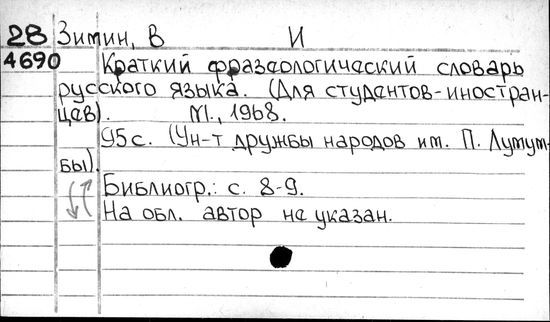 28 Зимин, В И
4690 Краткий фразеологический словарь
русского языка. (Для студентов-иностран-
цев). М., 1968.
95с. (Ун-т дружбы народов им. П. Лумум-
бы).
Библиогр.: с. 8-9.
На обл. автор не указан.